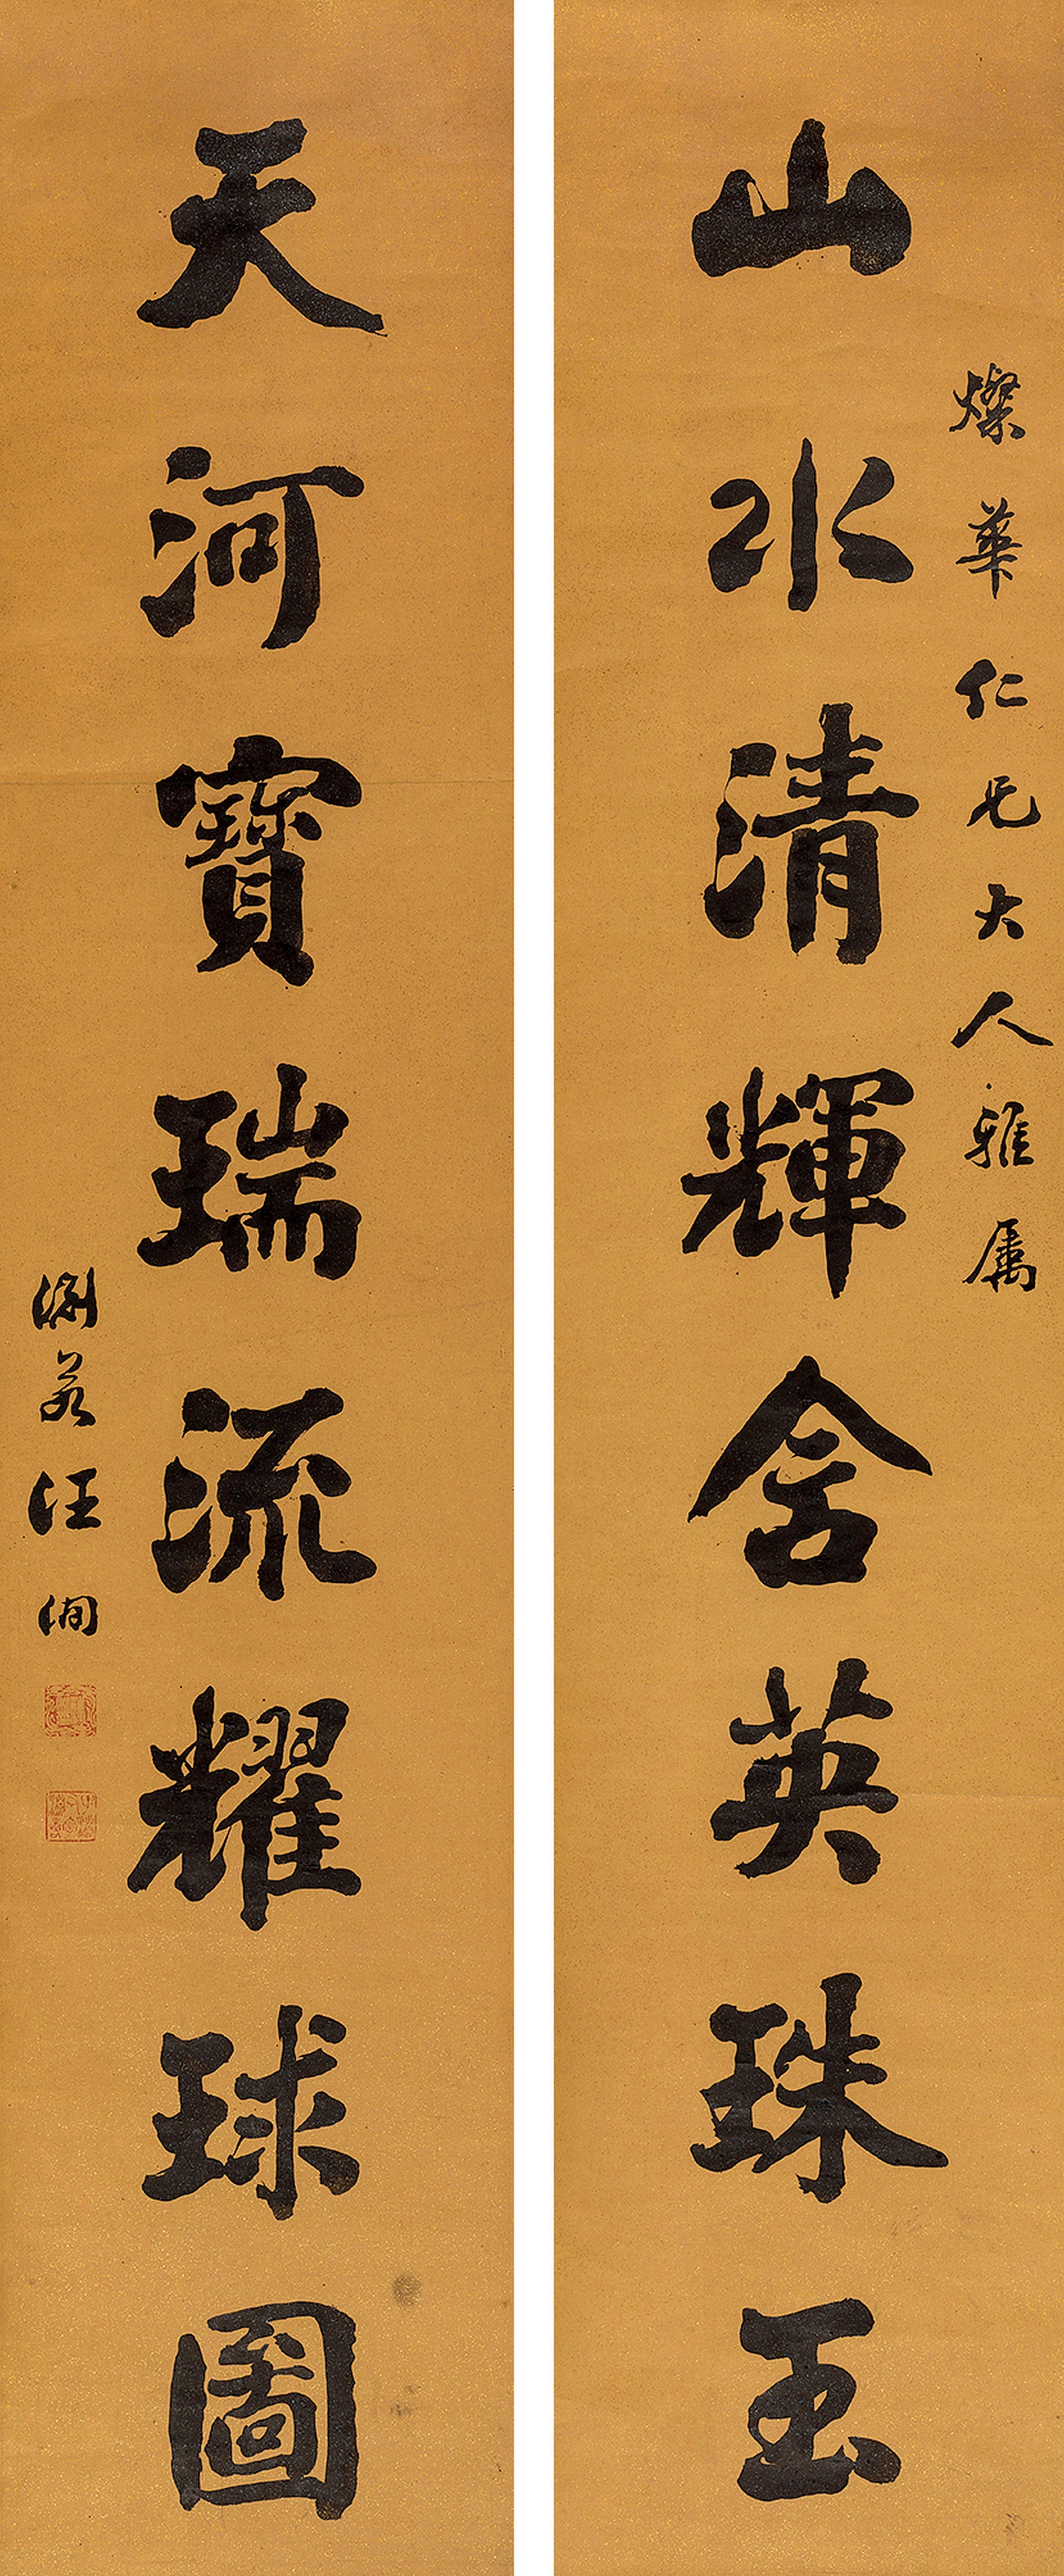 燦華仁兄大人雅属
山水清輝含英珠玉
天河寶瑞流耀球圖
渊若汪洵